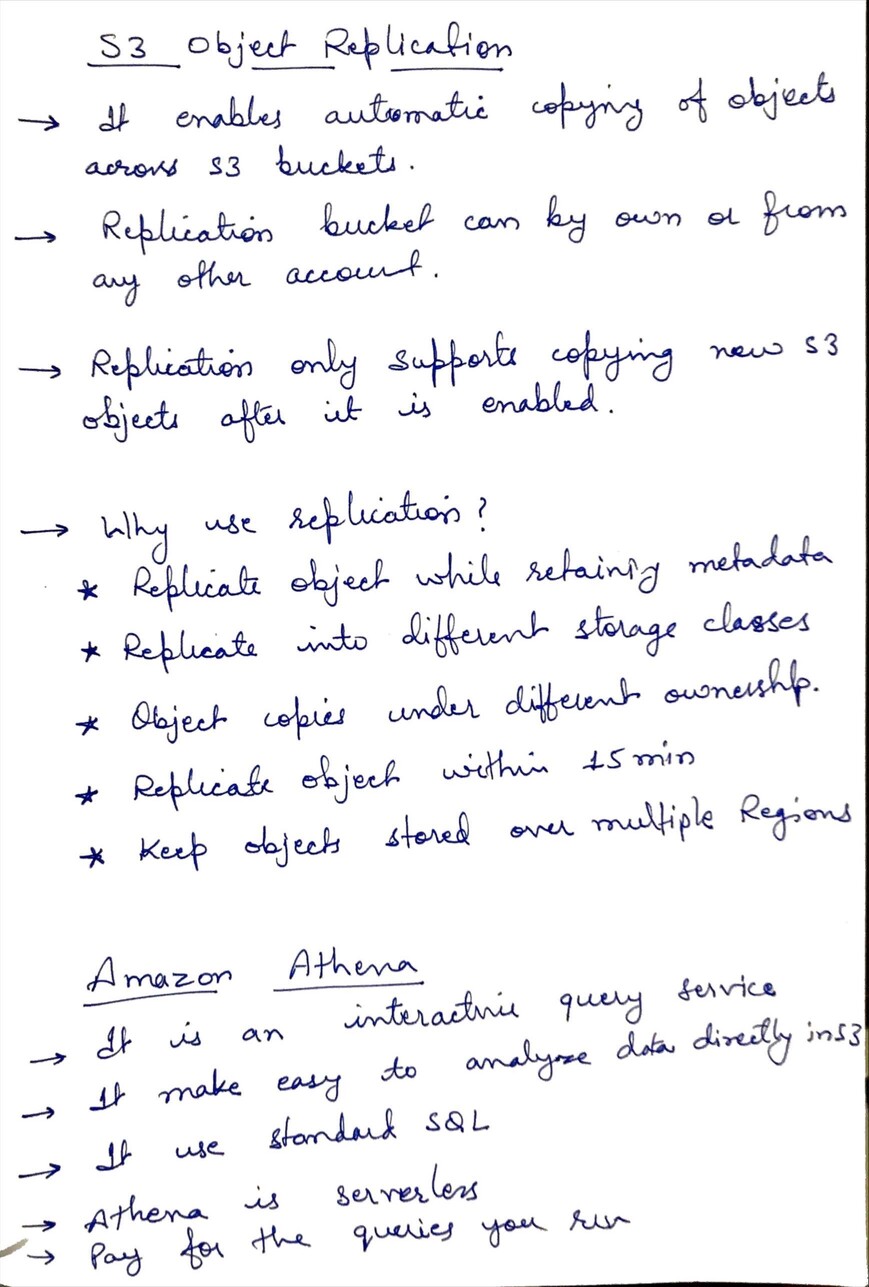 S3 Object Replication
→ It enables automatic copying of objects
across S3 buckets.
→ Replication bucket can by own or from
any other account.
→ Replication only supports copying new S3
objects after it is enabled.
→ Why use replication?
* Replicate object while retaining metadata
* Replicate into different storage classes
* Object copies under different ownership.
* Replicate object within 15 min
* Keep objects stored over multiple Regions
Amazon Athena
→ It is an interactive query service
→ It make easy to analyze data directly in S3
→ It use standard SQL
→ Athena is serverless
→ Pay for the queries you run